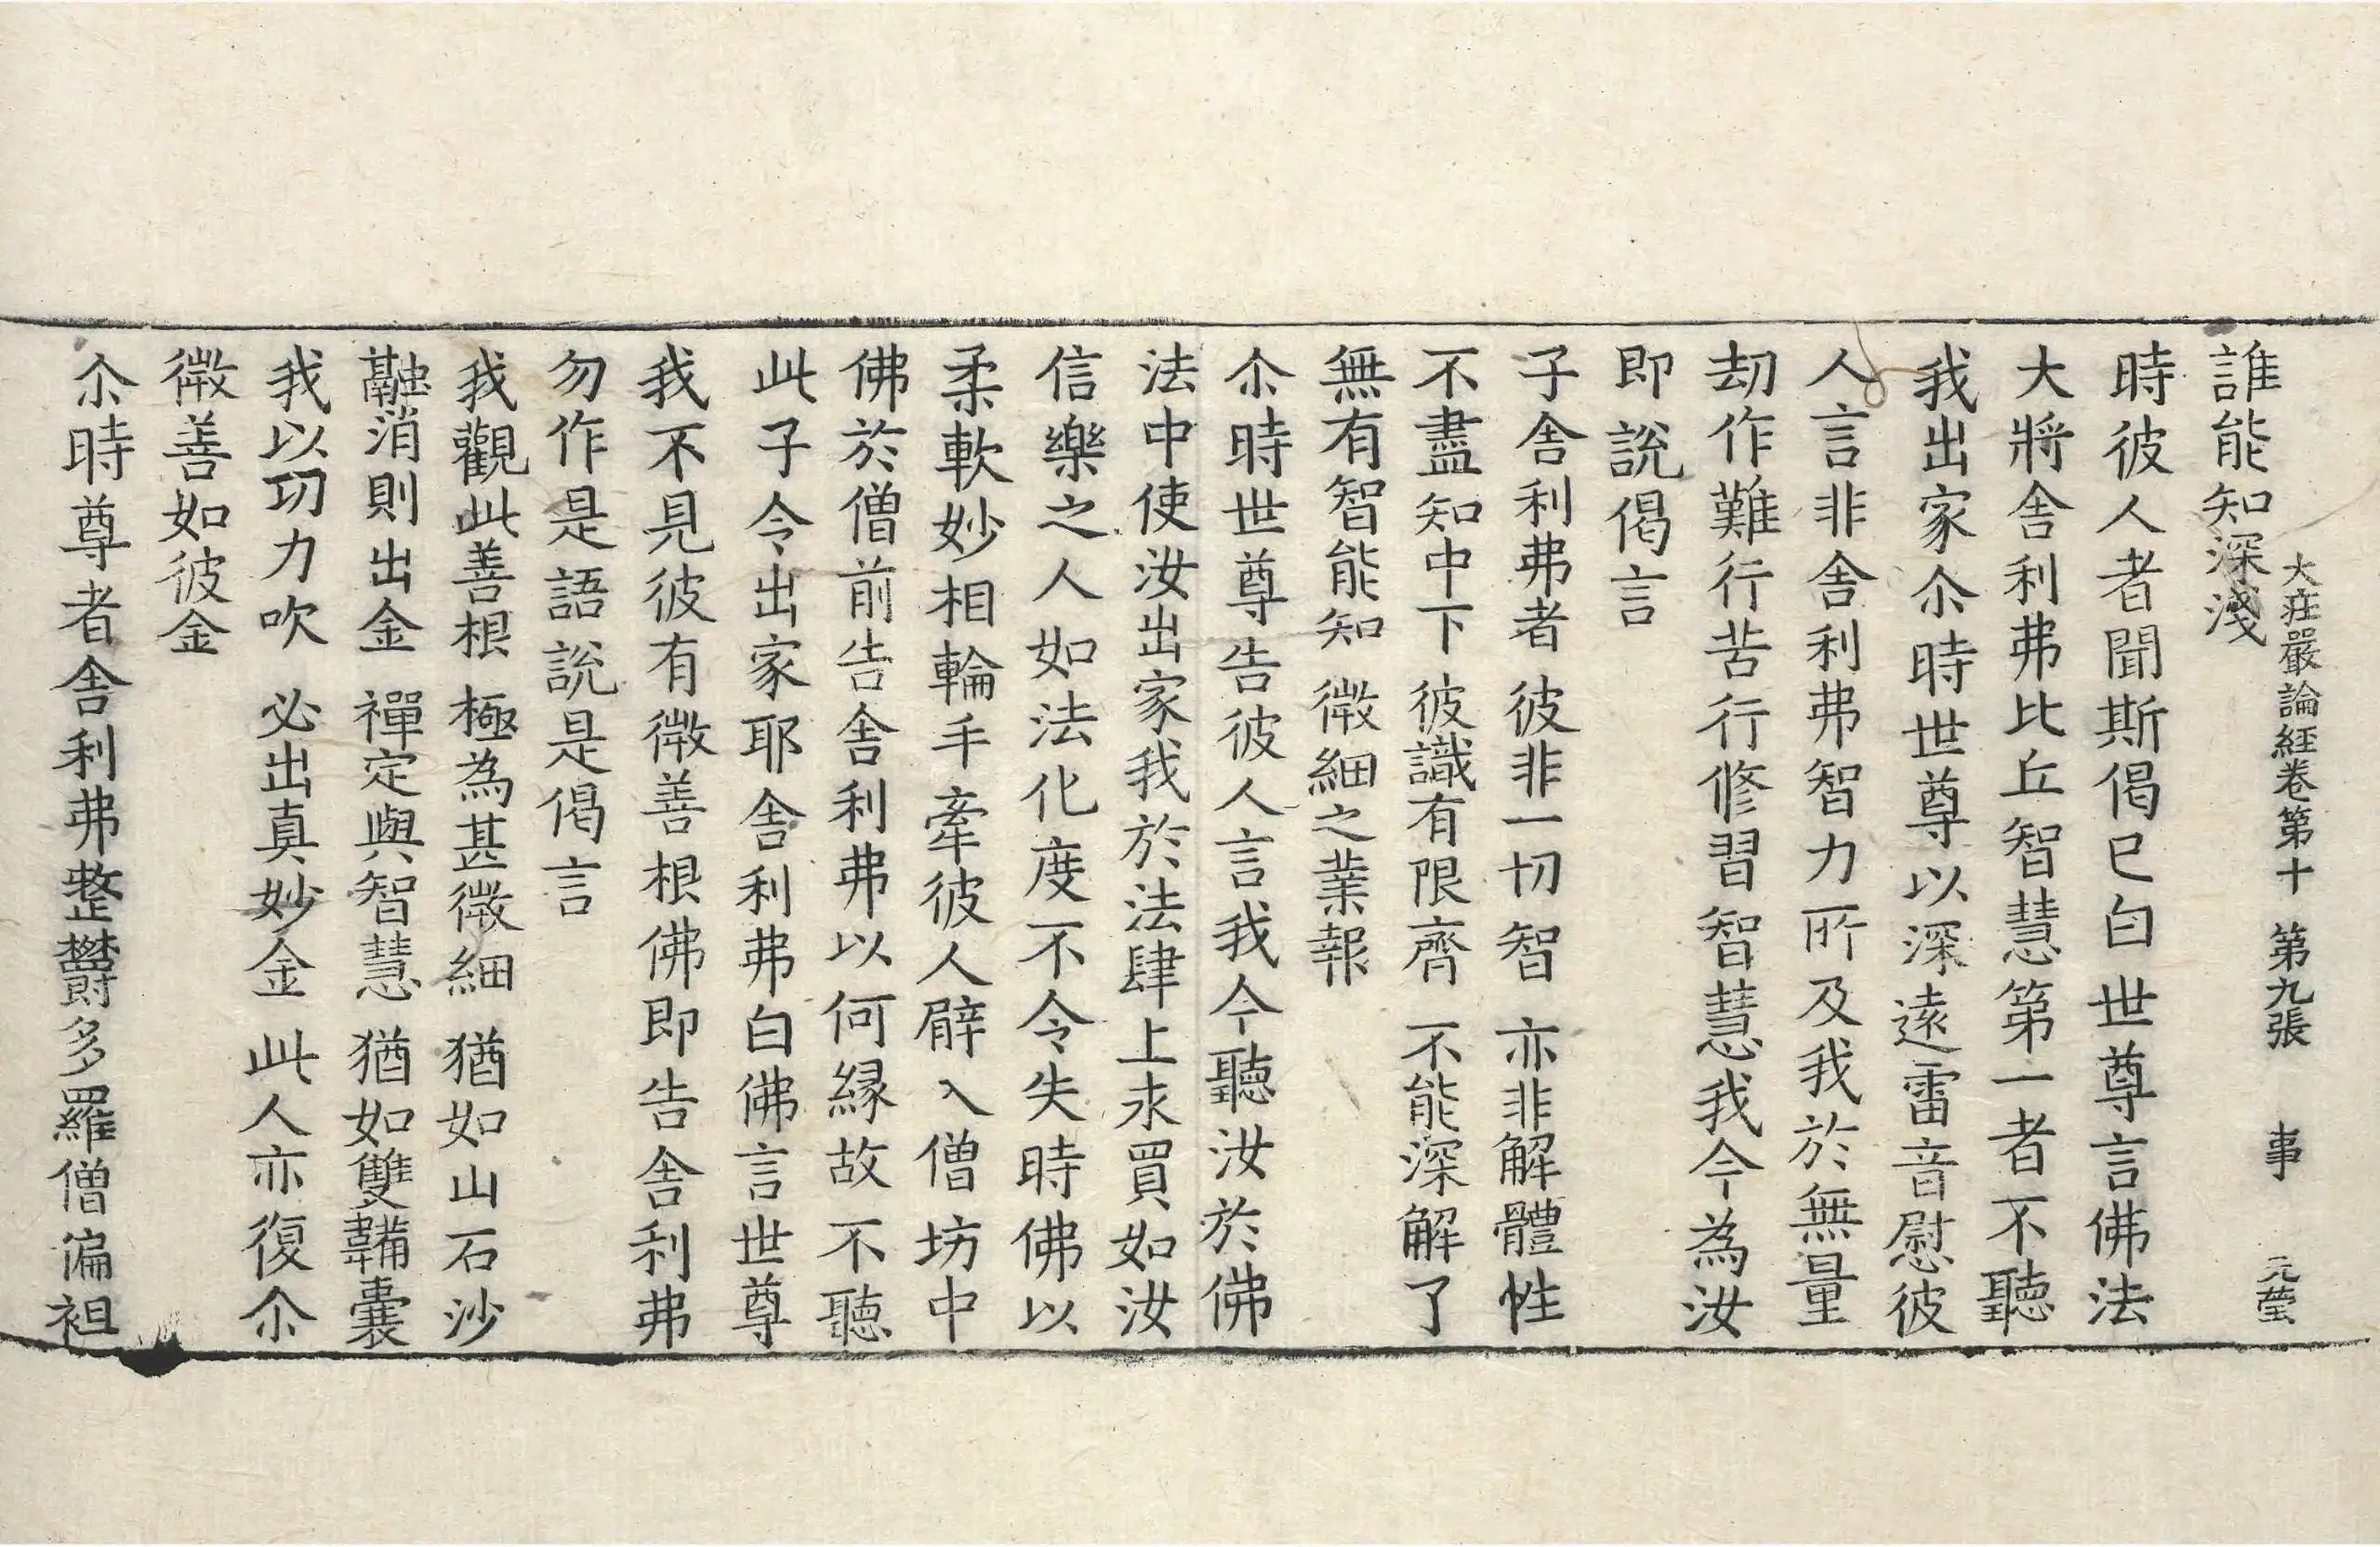 大莊嚴論経卷第十 第九張 事 元瑩
誰能知深淺
時彼人者聞斯偈已白世尊言佛法
大將舍利弗比丘智慧第一者不聽
我出家尒時世尊以深遠雷音慰彼
人言非舍利弗智力所及我於無量
劫作難行苦行修習智慧我今為汝
即說偈言
子舍利弗者 彼非一切智 亦非解體性
不盡知中下 彼識有限齊 不能深解了
無有智能知 微細之業報
尒時世尊告彼人言我今聽汝於佛
法中使汝出家我於法肆上求買如汝
信樂之人如法化度不令失時佛以
柔軟妙相輪手牽彼人臂入僧坊中
佛於僧前告舍利弗以何縁故不聽
此子令出家耶舍利弗白佛言世尊
我不見彼有微善根佛即告舍利弗
勿作是語說是偈言
我觀此善根 極為甚微細 猶如山石沙
融消則出金 禪定與智慧 猶如雙鞴囊
我以功力吹 必出真妙金 此人亦復尒
微善如彼金
尒時尊者舍利弗整欝多羅僧偏袒